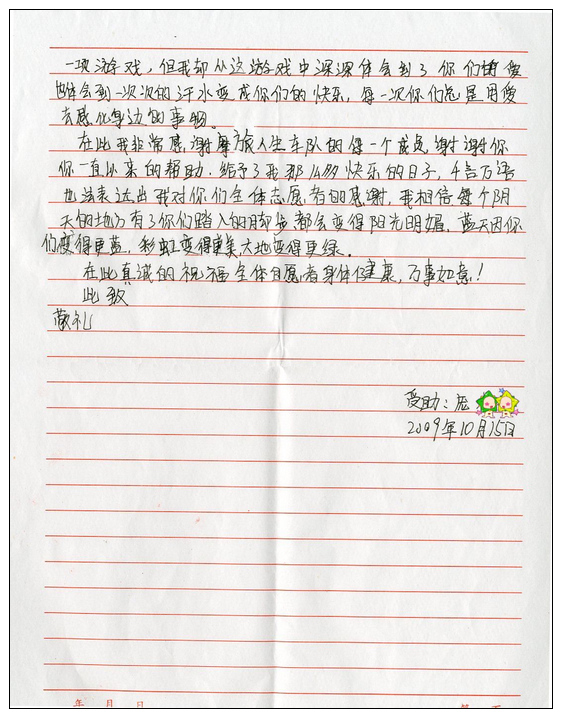 一项游戏，但我却从这游戏中深深体会到了你们的爱
体会到一次次的汗水变成你们的快乐，每一次你们总是用爱
去感化身边的事物。
在此我非常感谢摩旅人生车队的每一个成员谢谢你
你一直以来的帮助。给予了我那么多快乐的日子，千言万语
也法表达出我对你们全体志愿者的感谢，我相信每个阴
天的地方有了你们踏入的脚步都会变得阳光明媚，蓝天因你
们变得更蓝，彩虹变得更美大地变得更绿。
在此真诚的祝福全体自愿者身体健康，万事如意！
此致
敬礼
受助：庞
2009年10月15日
年 月 日